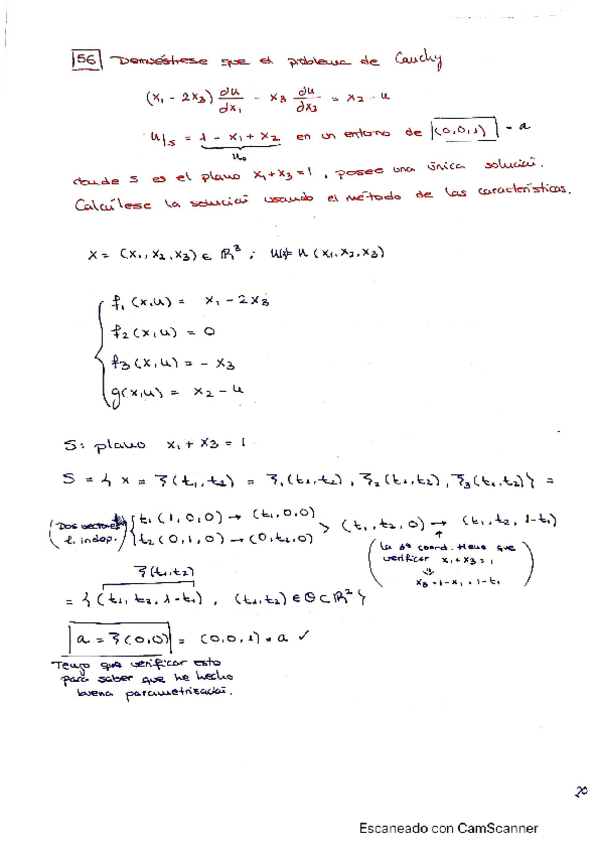 56 Demuéstrese que el problema de Cauchy
(x₁ - 2x₃) ∂u/∂x₁ - x₃ ∂u/∂x₃ = x₂ - u
u|ₛ = 1 - x₁ + x₂ en un entorno de (0,0,1) = a
u₀
donde S es el plano x₁+x₃=1, posee una única solución.
Calcúlese la solución usando el método de las características.
x = (x₁, x₂, x₃) ∈ ℝ³ ; u = u (x₁, x₂, x₃)
f₁ (x,u) = x₁ - 2x₃
f₂ (x,u) = 0
f₃ (x,u) = - x₃
g(x,u) = x₂ - u
S: plano x₁ + x₃ = 1
S = { x = ξ(t₁,t₂) = ξ₁(t₁,t₂), ξ₂(t₁,t₂), ξ₃(t₁,t₂)} =
(Dos vectores l. indep.) { t₁(1,0,0) → (t₁,0,0)
t₂(0,1,0) → (0,t₂,0) > (t₁,t₂,0) → (t₁,t₂,1-t₁)
(la 3ª coord. tiene que
verificar x₁+x₃=1
⇓
x₃ = 1-x₁ = 1-t₁)
ξ(t₁,t₂)
= { (t₁, t₂, 1-t₁), (t₁,t₂) ∈ Θ ⊂ ℝ² }
a = ξ(0,0) = (0,0,1) = a ✓
Tengo que verificar esto
para saber que he hecho
buena parametrización.
20
Escaneado con CamScanner